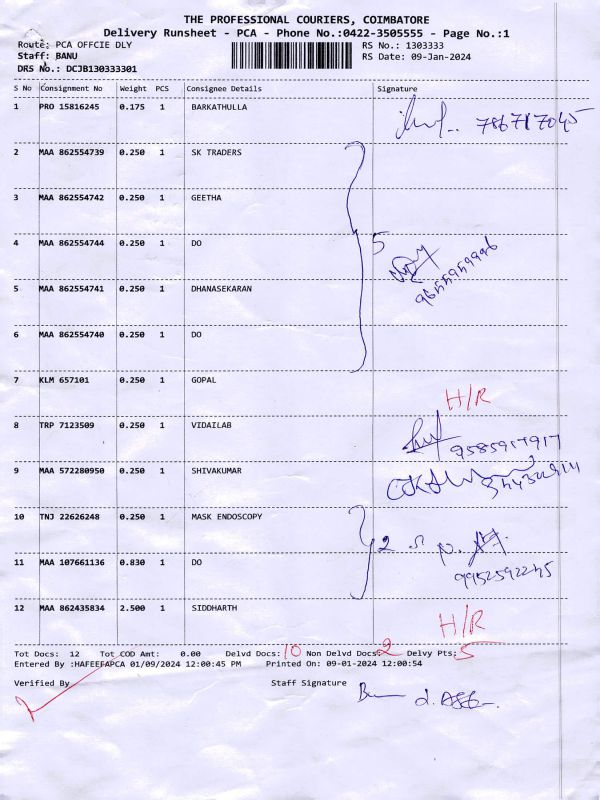 THE PROFESSIONAL COURIERS, COIMBATORE
Delivery Runsheet - PCA - Phone No.:0422-3505555 - Page No.:1
Route: PCA OFFCIE DLY RS No.: 1303333
Staff: BANU RS Date: 09-Jan-2024
DRS No.: DCJB130333301
S No Consignment No Weight PCS Consignee Details Signature
1 PRO 15816245 0.175 1 BARKATHULLA
2 MAA 862554739 0.250 1 SK TRADERS
3 MAA 862554742 0.250 1 GEETHA
4 MAA 862554744 0.250 1 DO 5
5 MAA 862554741 0.250 1 DHANASEKARAN
6 MAA 862554740 0.250 1 DO
7 KLM 657101 0.250 1 GOPAL H/R
8 TRP 7123509 0.250 1 VIDAILAB
9585917917
9 MAA 572280950 0.250 1 SHIVAKUMAR
10 TNJ 22626248 0.250 1 MASK ENDOSCOPY
2
11 MAA 107661136 0.830 1 DO
9952592245
12 MAA 862435834 2.500 1 SIDDHARTH H/R
Tot Docs: 12 Tot COD Amt: 0.00 Delvd Docs: 10 Non Delvd Docs: 2 Delvy Pts: 5
Entered By :HAFEEFAPCA 01/09/2024 12:00:45 PM Printed On: 09-01-2024 12:00:54
Verified By Staff Signature